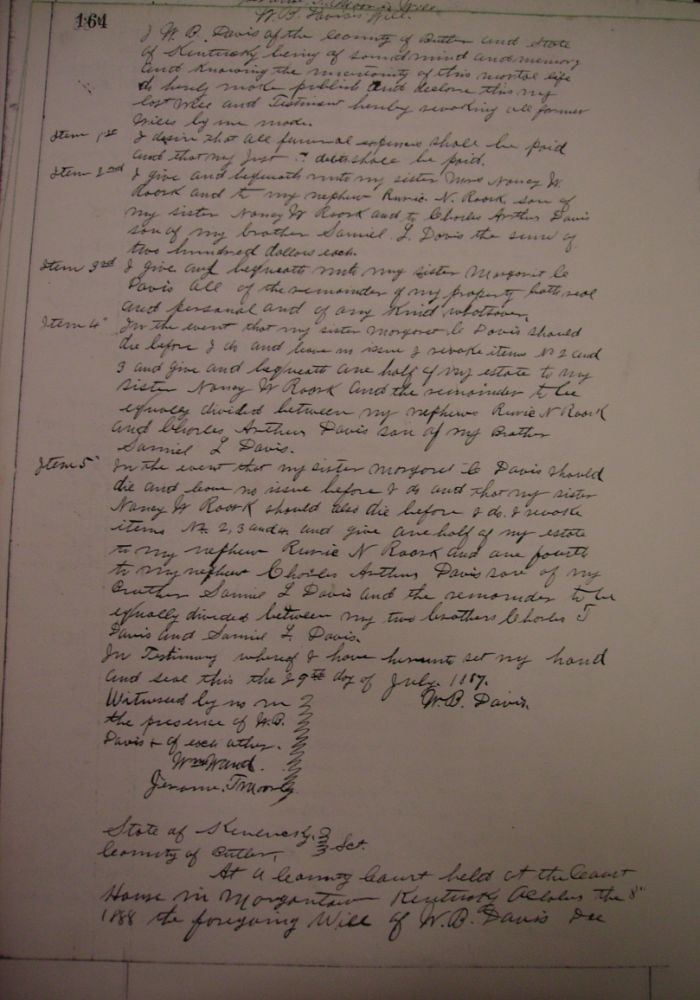 164
W. B. Davis's Will.
I W. B. Davis of the County of Butler and State
of Kentucky being of sound mind and memory
and knowing the uncertainty of this mortal life
do hereby make publish and declare this my
last Will and Testiment hereby revoking all former
Wills by me made.
Item 1st I desire that all funeral expenses shall be paid
and that my just debts shall be paid.
Item 2nd I give and bequeath unto my sister Mrs Nancy W.
Roark and to my nephew N. Roark, son of
my sister Nancy W Roark and to Charles Arthur Davis
son of my brother Samiel L. Davis the sum of
two hundred dollars each.
Item 3rd I give and bequeath unto my sister Margaret C
Davis all of the remainder of my property both real
and personal and of any kind whatsoever.
Item 4" In the event that my sister Margaret C Davis should
die before I do and leave no issue I revoke items No 2 and
3 and give and bequeath one half of my estate to my
sister Nancy W Roark and the remainder to be
equally divided between my nephews N Roark
and Charles Arthur Davis son of my Brother
Samiel L Davis.
Item 5" In the event that my sister Margaret C Davis should
die and leave no issue before I do and that my sister
Nancy W Roark should also die before I do. I revoke
items No. 2, 3 and 4. and give one half of my estate
to my nephew N Roark and one fourth
to my nephew Charles Arthur Davis son of my
Brother Samiel L Davis and the remainder to be
equally divided between my two brothers Charles T
Davis and Samiel L. Davis.
In Testimony whereof I have hereunto set my hand
and seal this the 29th day of July 1887.
Witnessed by us in W. B. Davis.
the presence of W. B.
Davis & of each other.
Wm Ward.
Jerome
State of Kentucky,
County of Butler, Sct.
At a County Court held at the Court
House in Morgantown Kentucky October the 8"
1888 the foregoing Will of W. B. Davis Dec